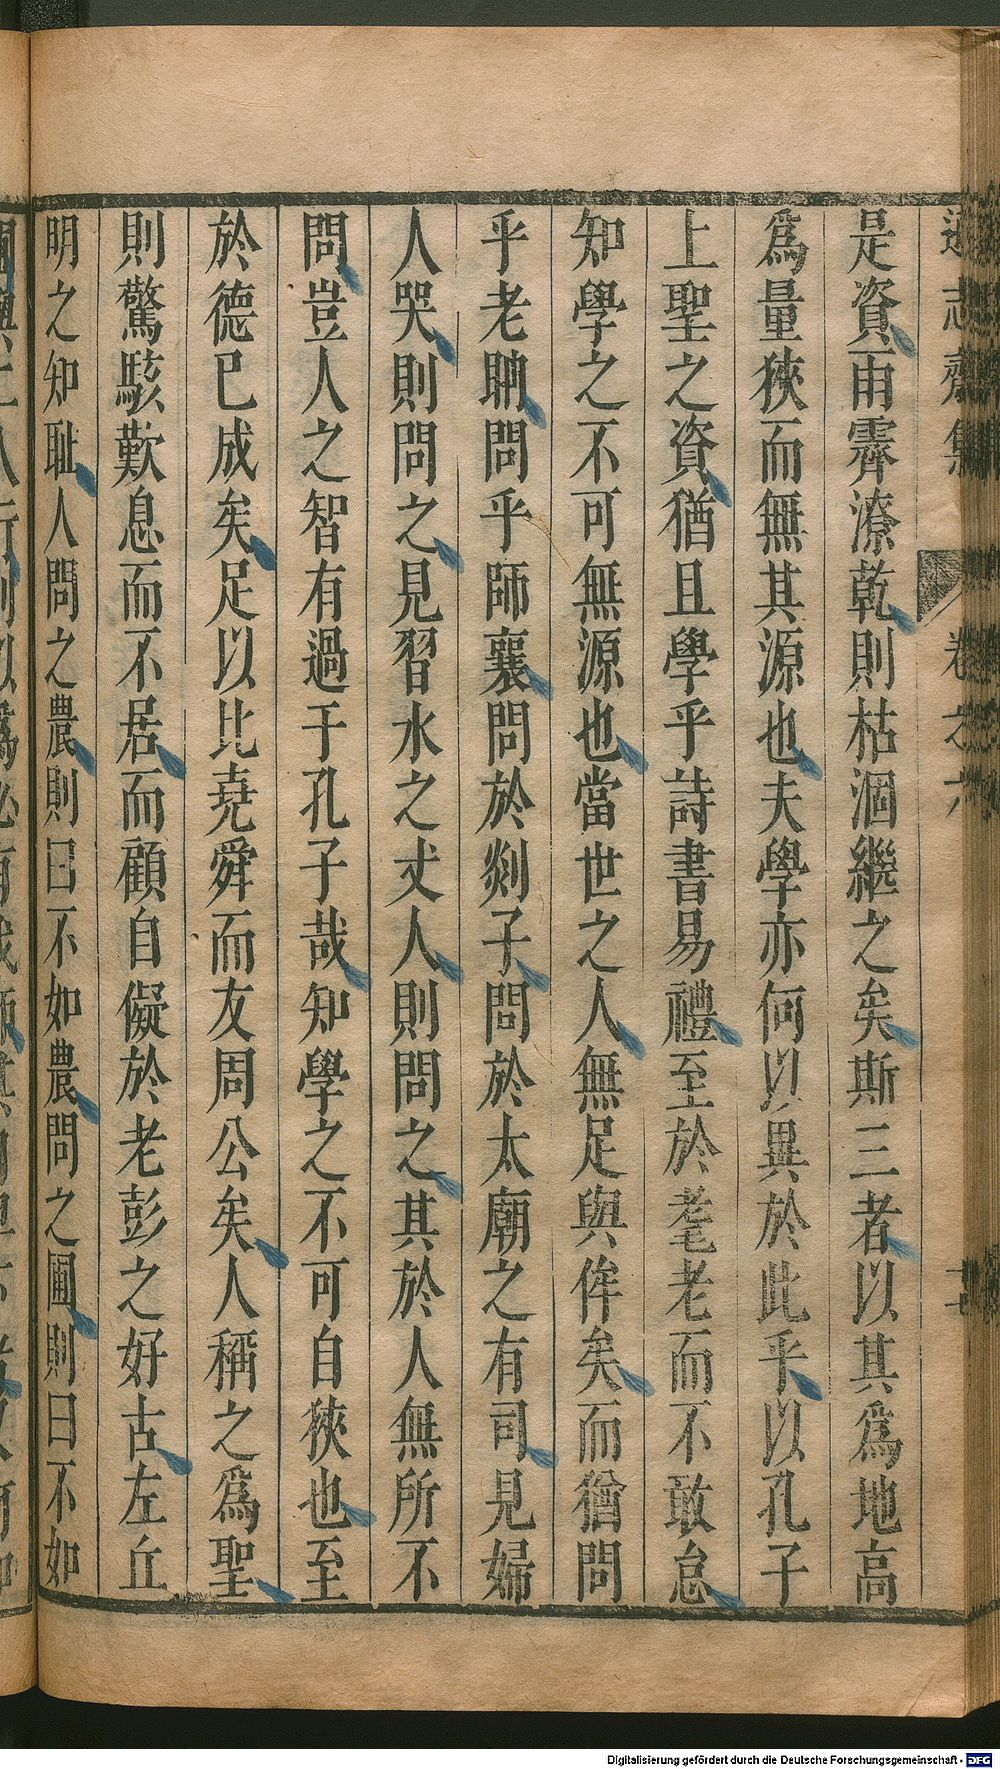 是資雨霽潦乾則枯涸繼之矣斯三者以其爲地高
爲量狹而無其源也夫學亦何以異於此乎以孔子
上聖之資猶且學乎詩書易禮至於耄老而不敢怠
知學之不可無源也當世之人無足與侔矣而猶問
乎老聃問乎師襄問於郯子問於太廟之有司見婦
人哭則問之見習水之丈人則問之其於人無所不
問豈人之智有過于孔子哉知學之不可自狹也至
於德已成矣足以比堯舜而友周公矣人稱之爲聖
則驚駭歎息而不居而顧自儗於老彭之好古左丘
明之知耻人問之農則曰不如農問之圃則曰不如
卷之六
Digitalisierung gefördert durch die Deutsche Forschungsgemeinschaft - DFG